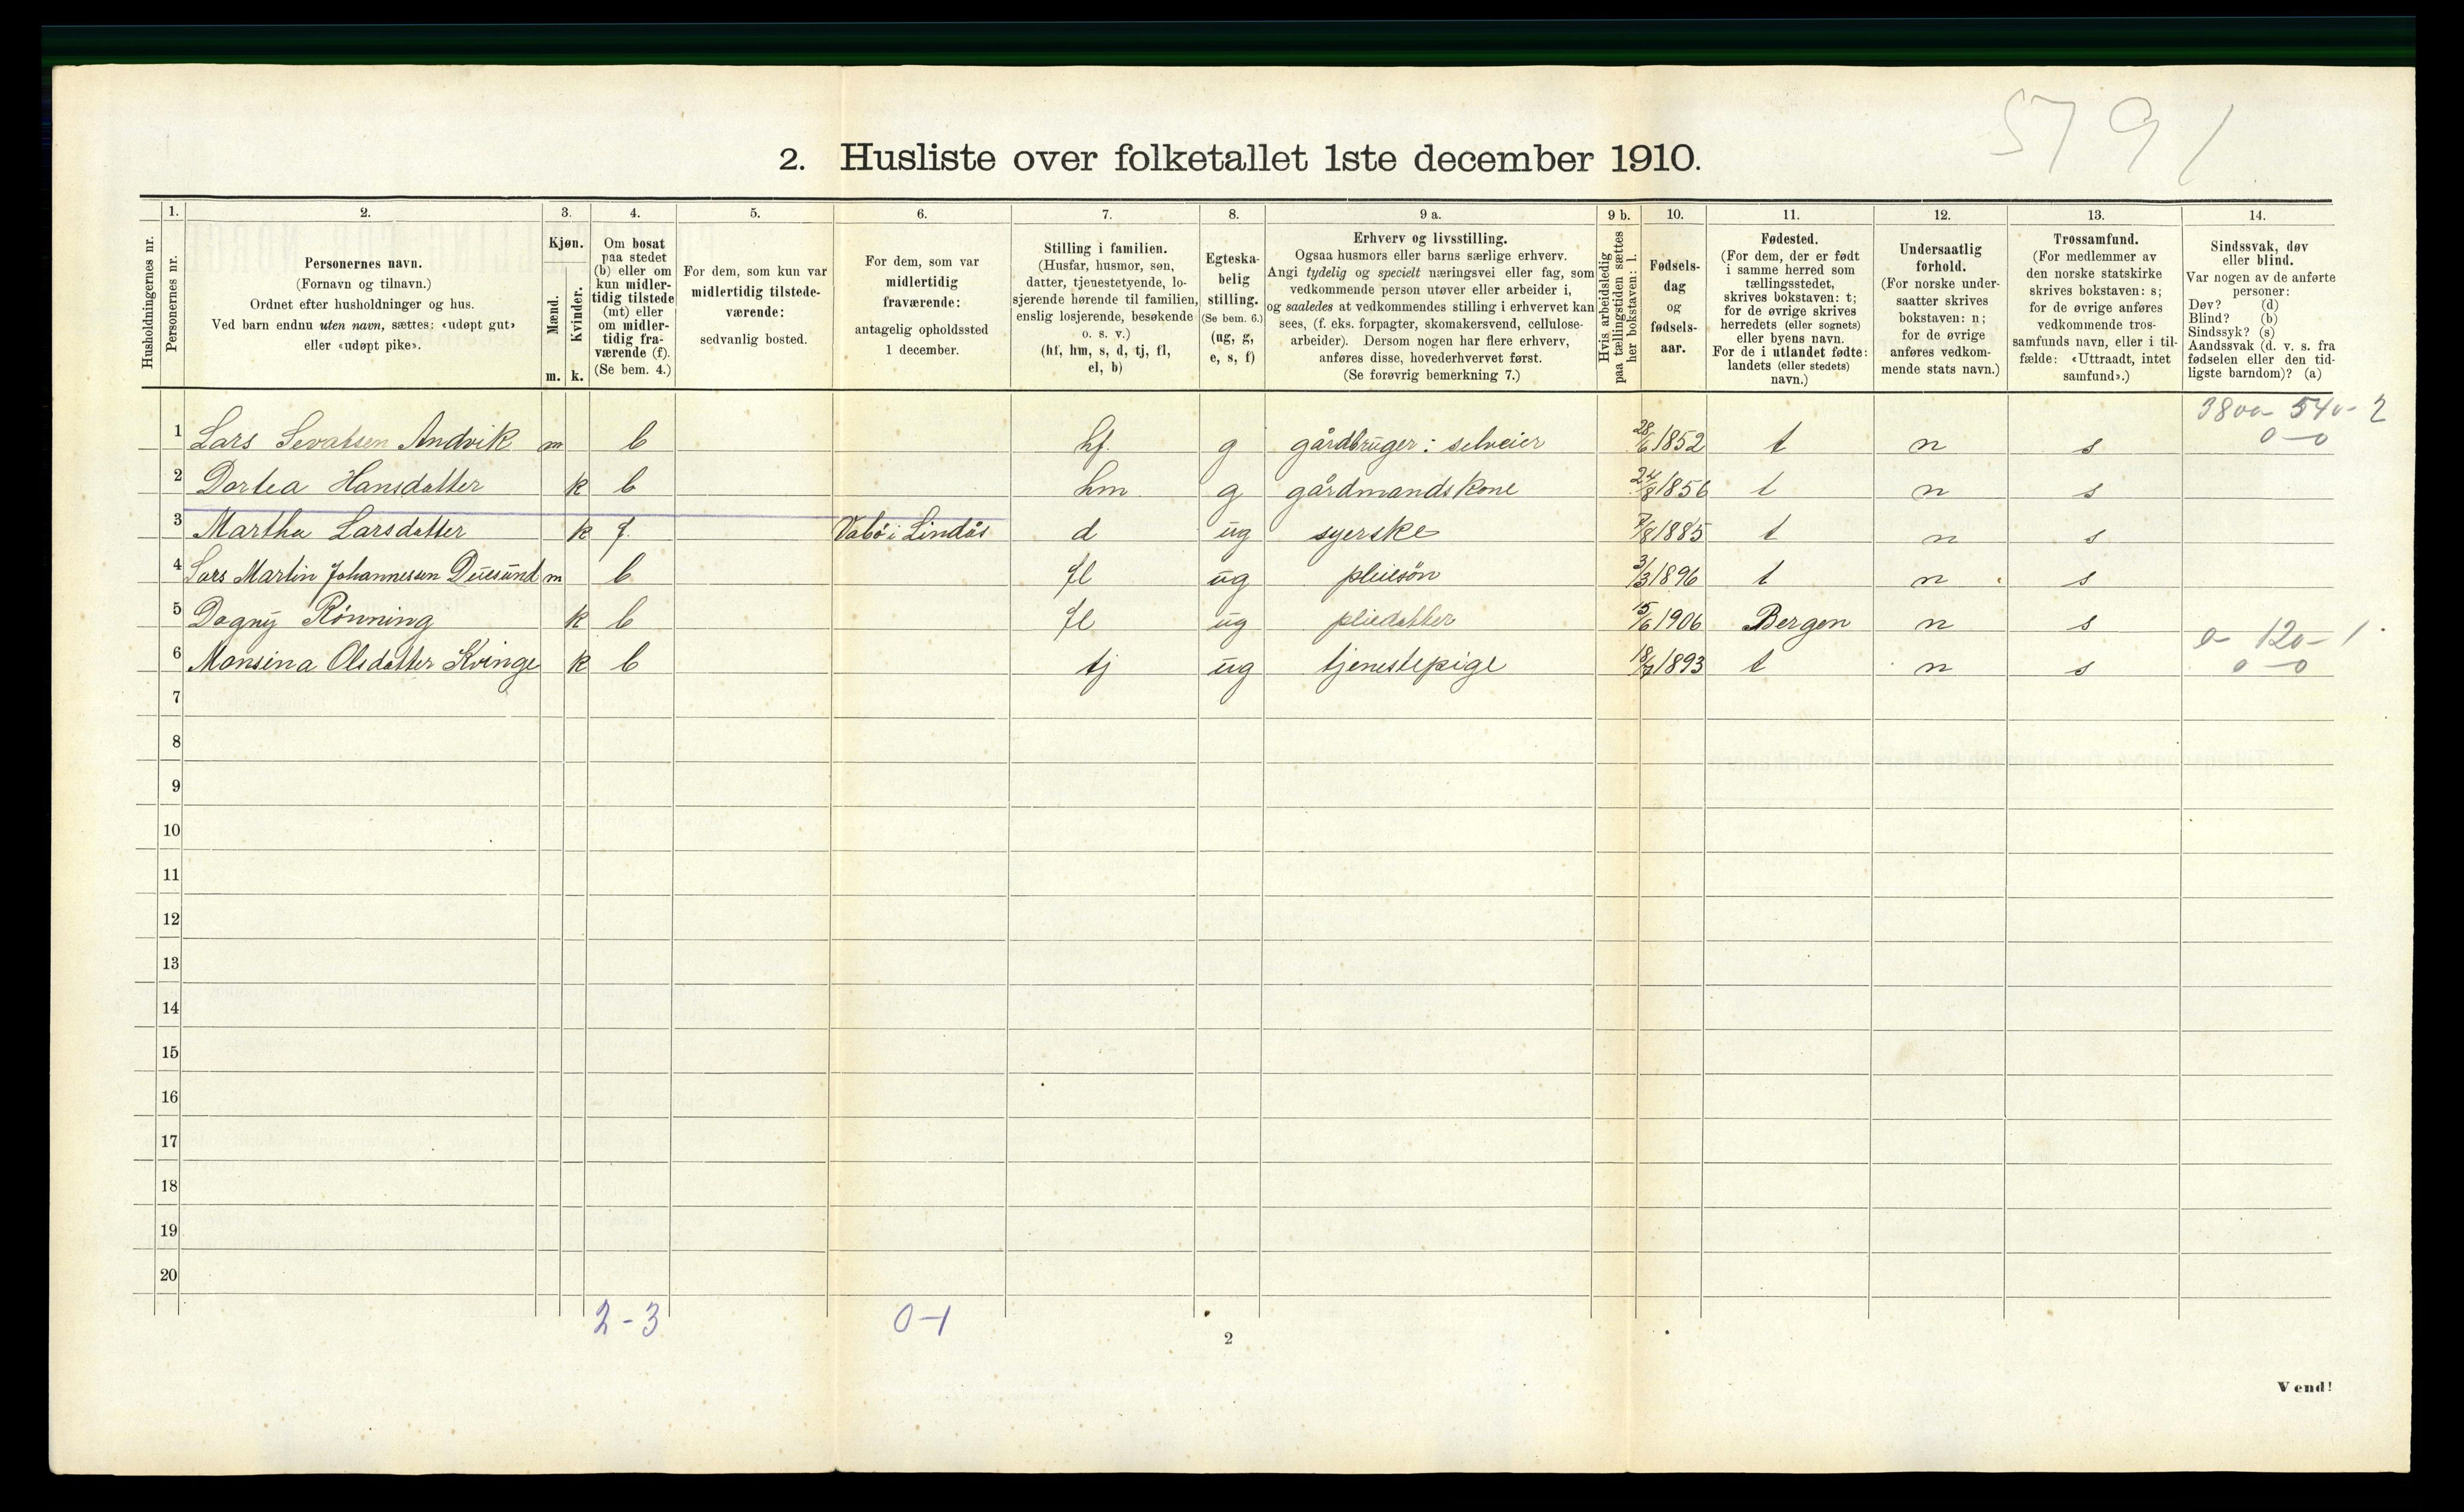 5791
2. Husliste over folketallet 1ste december 1910.
1. 2. 3. 4. 5. 6. 7. 8. 9 a. 9 b. 10. 11. 12. 13. 14.
Husholdningernes nr.
Personernes nr.
Personernes navn.
(Fornavn og tilnavn.)
Ordnet efter husholdninger og hus.
Ved barn endnu uten navn, sættes: «udøpt gut»
eller «udøpt pike».
Kjøn.
Mænd.
Kvinder.
m. k.
Om bosat
paa stedet
(b) eller om
kun midler-
tidig tilstede
(mt) eller
om midler-
tidig fra-
værende (f).
(Se bem. 4.)
For dem, som kun var
midlertidig tilstede-
værende:
sedvanlig bosted.
For dem, som var
midlertidig
fraværende:
antagelig opholdssted
1 december.
Stilling i familien.
(Husfar, husmor, søn,
datter, tjenestetyende, lo-
sjerende hørende til familien,
enslig losjerende, besøkende
o. s. v.)
(hf, hm, s, d, tj, fl,
el, b)
Egteska-
belig
stilling.
(Se bem. 6.)
(ug, g,
e, s, f)
Erhverv og livsstilling.
Ogsaa husmors eller barns særlige erhverv.
Angi tydelig og specielt næringsvei eller fag, som
vedkommende person utøver eller arbeider i,
og saaledes at vedkommendes stilling i erhvervet kan
sees, (f. eks. forpagter, skomakersvend, cellulose-
arbeider). Dersom nogen har flere erhverv,
anføres disse, hovederhvervet først.
(Se forøvrig bemerkning 7.)
Hvis arbeidsledig
paa tællingstiden sættes
her bokstaven: l.
Fødsels-
dag
og
fødsels-
aar.
Fødested.
(For dem, der er født
i samme herred som
tællingsstedet,
skrives bokstaven: t;
for de øvrige skrives
herredets (eller sognets)
eller byens navn.
For de i utlandet fødte:
landets (eller stedets)
navn.)
Undersaatlig
forhold.
(For norske under-
saatter skrives
bokstaven: n;
for de øvrige
anføres vedkom-
mende stats navn.)
Trossamfund.
(For medlemmer av
den norske statskirke
skrives bokstaven: s;
for de øvrige anføres
vedkommende tros-
samfunds navn, eller i til-
fælde: «Uttraadt, intet
samfund».)
Sindssvak, døv
eller blind.
Var nogen av de anførte
personer:
Døv? (d)
Blind? (b)
Sindssyk? (s)
Aandssvak (d. v. s. fra
fødselen eller den tid-
ligste barndom)? (a)
3800- 540- 2
0-0
1 Lars Sevatsen Andvik m b hf. g gårdbruger: selveier 28/6 1852 t n s
2 Dortea Hansdatter k b hm g gårdmandskone 24/8 1856 t n s
3 Martha Larsdatter k f. Vabø i Lindås d ug syerske 7/8 1885 t n s
4 Lars Martin Johannessen Duesund m b fl ug pleiesön 3/3 1896 t n s
5 Dagny Rönning k b fl ug pliedatter 15/6 1906 Bergen n s
0- 120- 1.
6 Monsina Olsdatter Kvinge k b tj ug tjenestepige 18/7 1893 t n s 0-0
7
8
9
10
11
12
13
14
15
16
17
18
19
20
2-3 0-1
2
Vend!